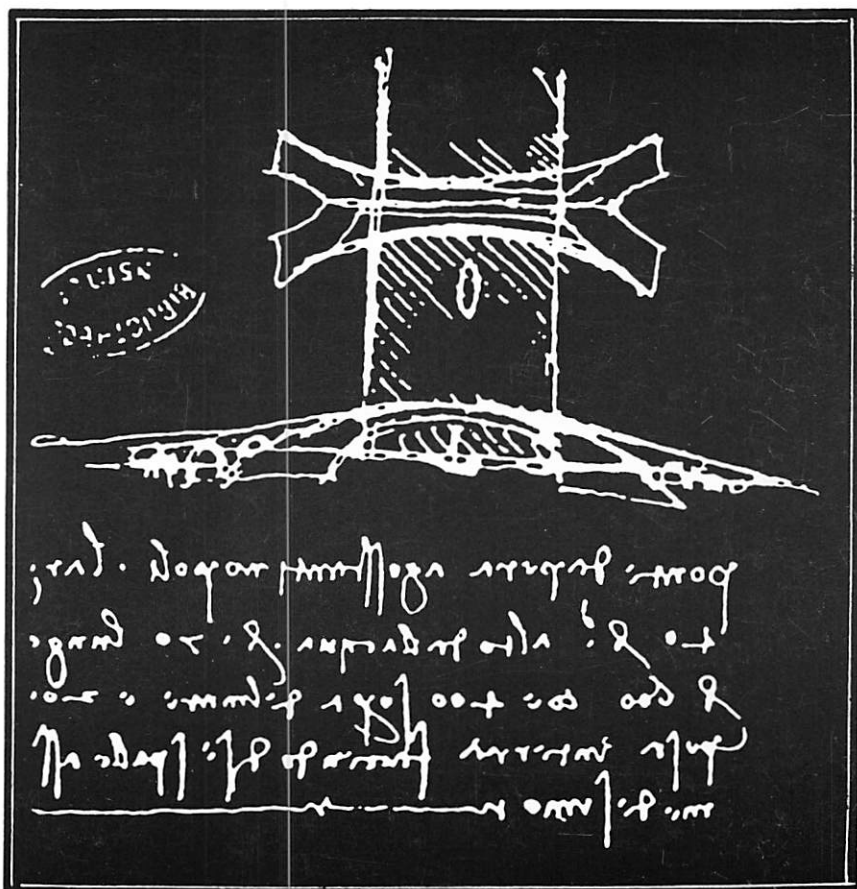 ponte da pera a gosstantinopoli
40 br alto dalacqua br 70 lungo
br 600 coe 400 sopra del mare e 200
posa in terra faciendo di se spalle
medesimo